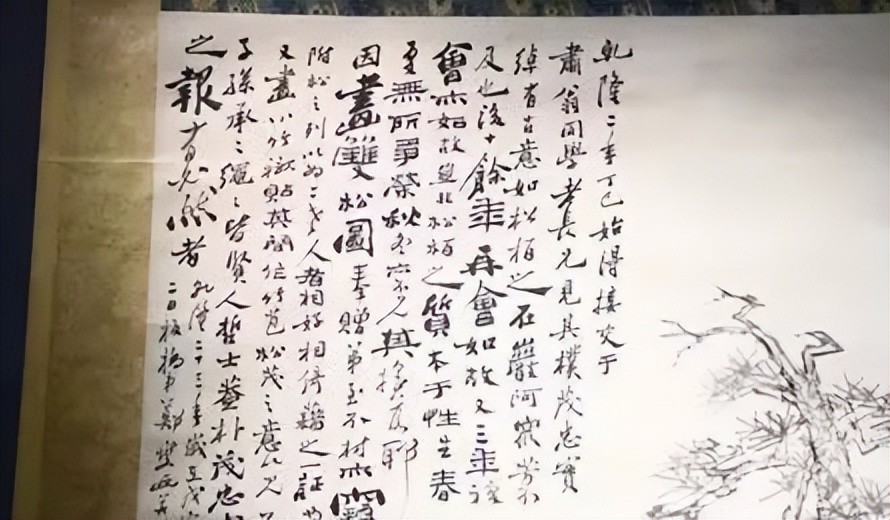 乾隆二年丁巳始得接交于
肅翁同學老長兄見其樸茂忠實
綽有古意如松柏之在巖阿衆芳不
及也後十餘年再會如故又三年復
會亦如故豈非松柏之質本于性生春
夏無所爭榮秋冬亦不見其搖落耶
因畫雙松圖奉贈弟至不材亦竊
附松之列以為二老人者相好相倚藉之一証也
又畫小竹襯貼其間作竹苞松茂之意以見
子孫承々繩々皆賢人哲士蓋朴茂忠
之報有必然者
乾隆二十三年歲在戊
二日板橋弟鄭燮畫